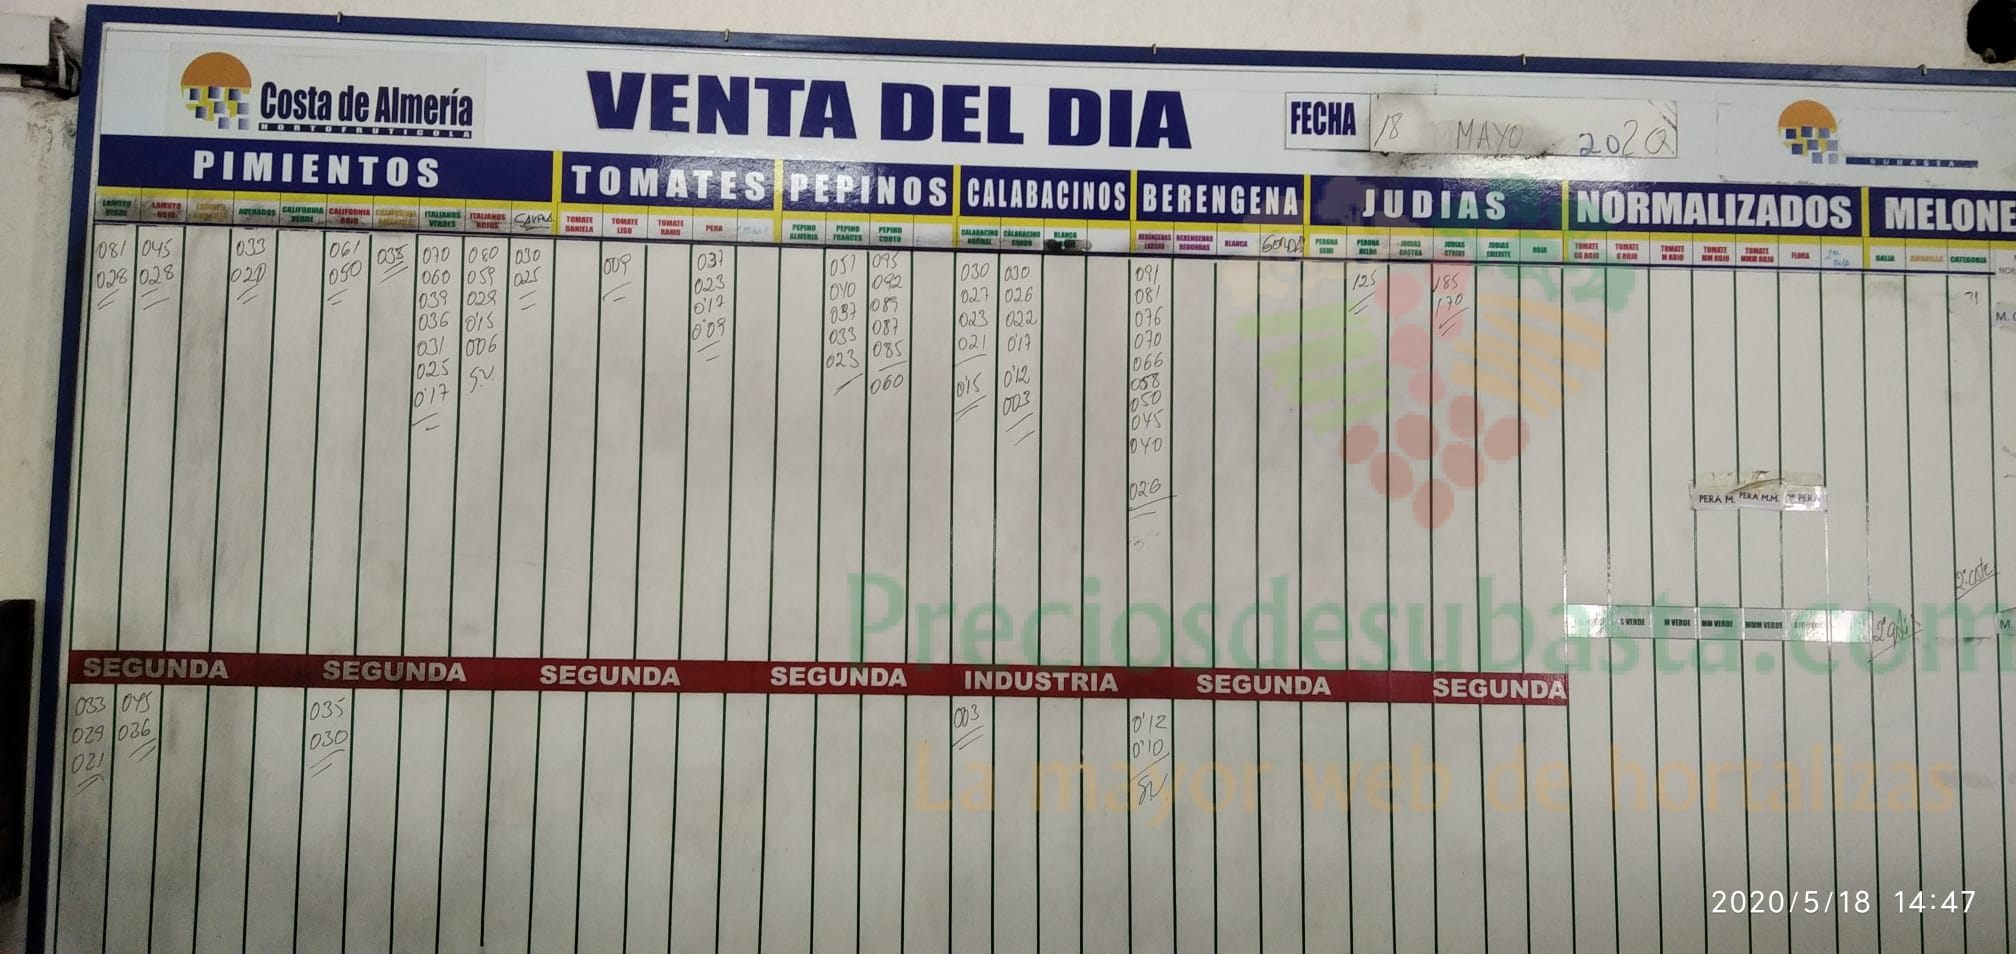 Costa de Almería
HORTOFRUTICOLA
VENTA DEL DIA
FECHA 18 MAYO 2020
SUBASTA
PIMIENTOS TOMATES PEPINOS CALABACINOS BERENGENA JUDIAS NORMALIZADOS MELONE
LAMUYO VERDE LAMUYO ROJO LAMUYO AMARILLO ASENADOS CALIFORNIA VERDE CALIFORNIA ROJO CALIFORNIA AMARILLO ITALIANOS VERDES ITALIANOS ROJOS
TOMATE DANIELA TOMATE LISO TOMATE RAMO PERA
PEPINO ALMERIA PEPINO FRANCES PEPINO CORTO
CALABACINO NORMAL CALABACINO GORDO BLANCO
BERENGENAS LARGAS BERENGENAS REDONDAS BLANCA GORDA
PERONA SEMI PERONA HELDA JUDIAS RASTRA JUDIAS STRIKE JUDIAS EMERITE ROJA
TOMATE GG ROJO TOMATE G ROJO TOMATE M ROJO TOMATE MM ROJO TOMATE MMM ROJO FLORA
GALIA AMARILLO CATEGORIA
081 045 033 061 038 070 060 030
028 028 050 060 059 025
039 029
036 0'15
031 006
025 S.V.
0'17
009
037
023
0'17
0'09
051 095
040 092
037 089
033 087
023 085
060
030 030
027 026
023 022
021 0'17
0'15 0'12
003
091
081
076
070
066
058
050
045
040
026
125 185
170
PERA M. PERA M.M. PERA
G VERDE M VERDE MM VERDE MMM VERDE
M.
SEGUNDA SEGUNDA SEGUNDA SEGUNDA INDUSTRIA SEGUNDA SEGUNDA
033 045 035 003 0'12
029 036 030 0'10
021 S.V.
Preciosdesubasta.com
La mayor web de hortalizas
2020/5/18 14:47